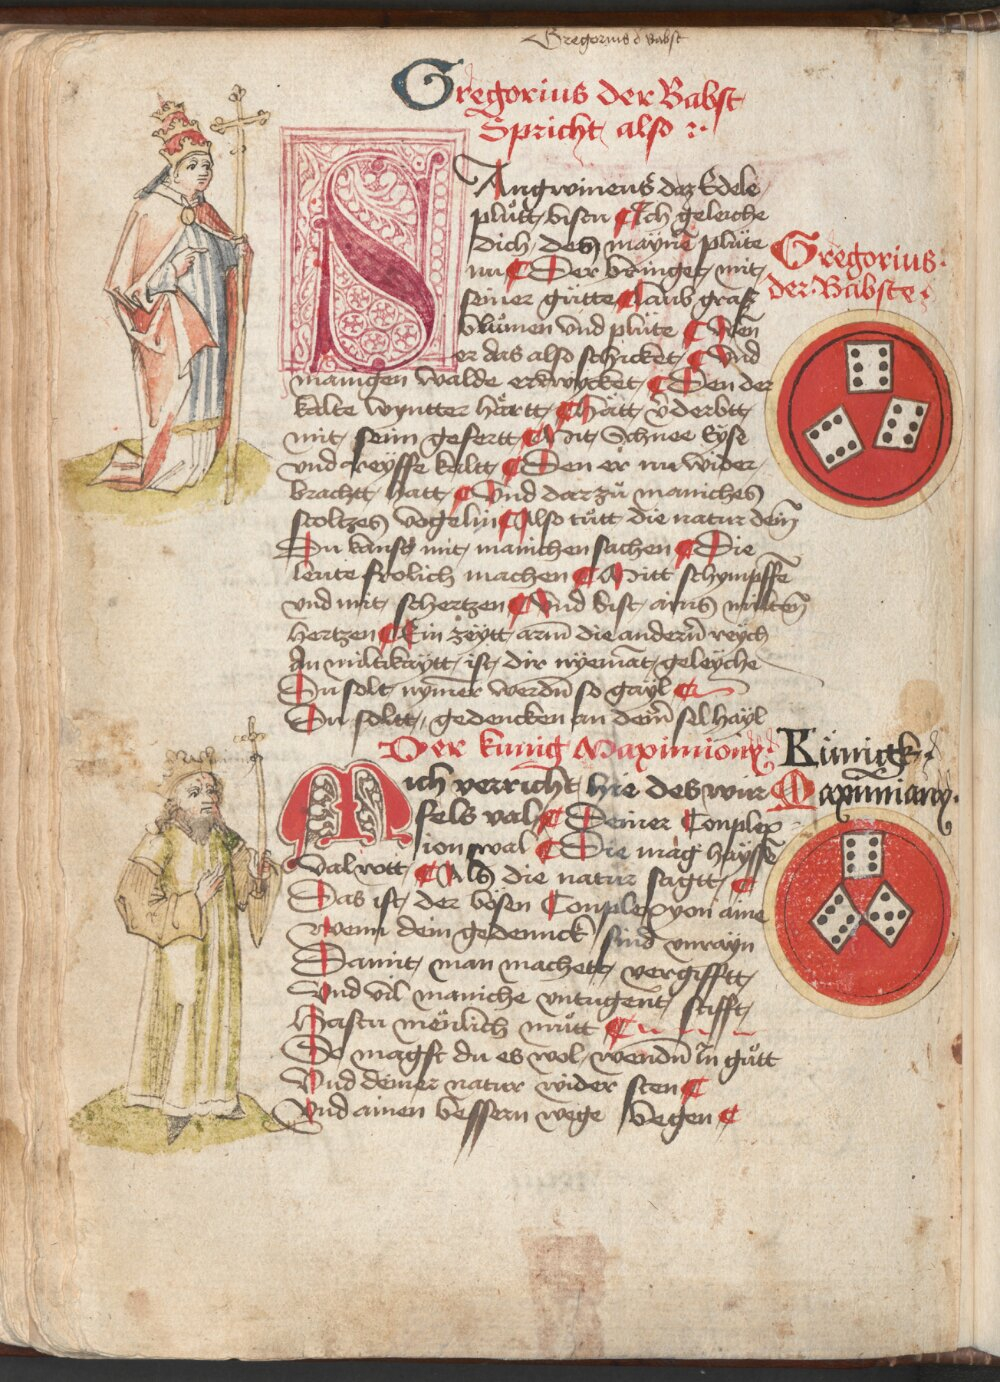 Gregorius d babst
Gregorius der Babst
Spricht also
SAngwineus der Edele
plůtt bistu Ich geleiche
dich dem mayne plüte
nu Der bringet mit
seiner gütte Laub gras
blůmen vnd plüte Wen
er das also schicket Vnd
manigen walde erkwicket Den der
kalte wyntter hårtt Hått vderbtt
mit seim gefertt Mit Schnee Eyse
vnd reyffe kaltt Den er nu wider
brachtt hatt Vnd darzů maniches
stoltzes vogelin Also tůtt die natur dein
Du kanst mit manichen sachen Die
leute frolich machen Mitt schympffe
vnd mit schertzen Vnd bist ains milten
hertzen Ein zeytt arm die andern reych
An miltikaytt ist dir nyemat geleyche
Du solt nymer werdn so gayl
Du soltt gedencken an dein sel hayl
Gregorius
der Babste
Der kunig Maximiony
Künigk
Maximiany
Mich verricht hie des wür
fels val Deiner Conplex
ion wal Die mag haysse
val rott Als die natur sagtt
Das ist der bösen Complexyon aine
Wenn dein gedennck sind vnrayn
Damit man machett vergifftt
Vnd vil maniche vntugent stifft
Hastu menlich můtt
So magst du es wol wendn in gůtt
Vnd deiner natur wider sten
Vnd ainen bessern wege begen